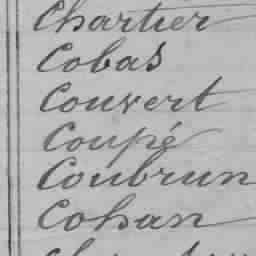 Chartier
Cobas
Couvert
Coupé
Coubrun
Cohan